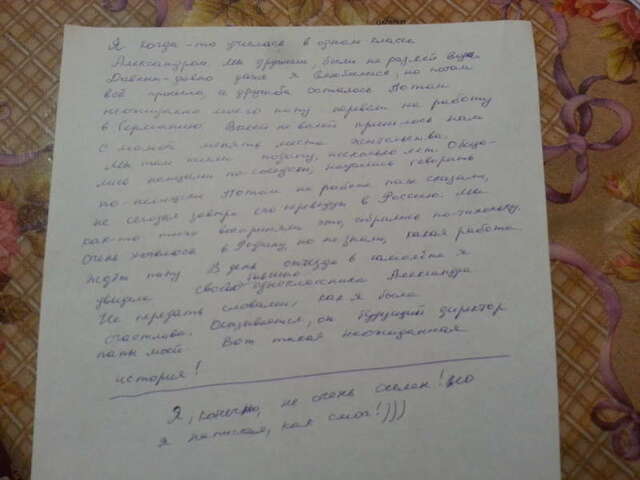 Я когда-то училась в одном классе
Александром. Мы дружили, были не разлей вода.
Давным-давно даже я влюбилась, но потом
всё прошло, а дружба осталась. Потом
неожиданно моего папу перевели на работу
в Германию. Волей не волей пришлось нам
с мамой менять место жительства.
Мы там жили подолгу, несколько лет. Обща-
лись с немцами по-соседски, научились говорить
по-немецки. Потом на работе папе сказали,
не сегодня завтра его переведут в Россию. Мы
как-то тихо восприняли это, собрались по-тихоньку.
Очень хотелось в Родину, но не знали, какая работа
ждёт папу. В день отъезда в самолёте я
увидела своего бывшего одноклассника Александра.
Не передать словами, как я была
счастлива. Оказывается, он будущий директор
папы моей. Вот такая неожиданная
история!
Я, конечно, не очень силен! но
я написал, как смог!)))